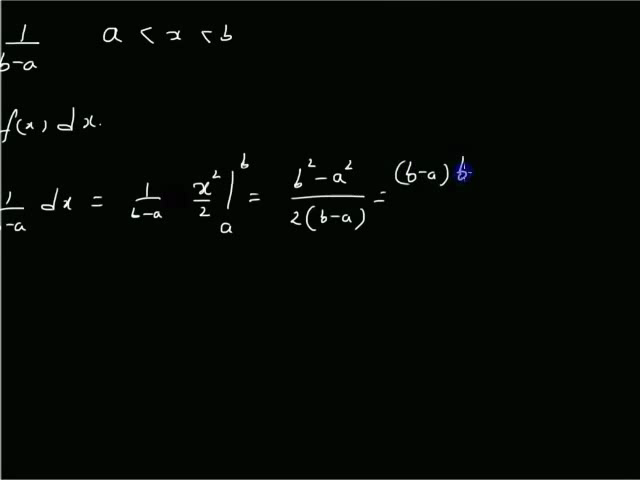 1/(b-a) a < x < b
f(x) dx.
1/(b-a) dx = 1/(b-a) x²/2 |ₐᵇ = (b² - a²)/(2(b-a)) = (b-a) b